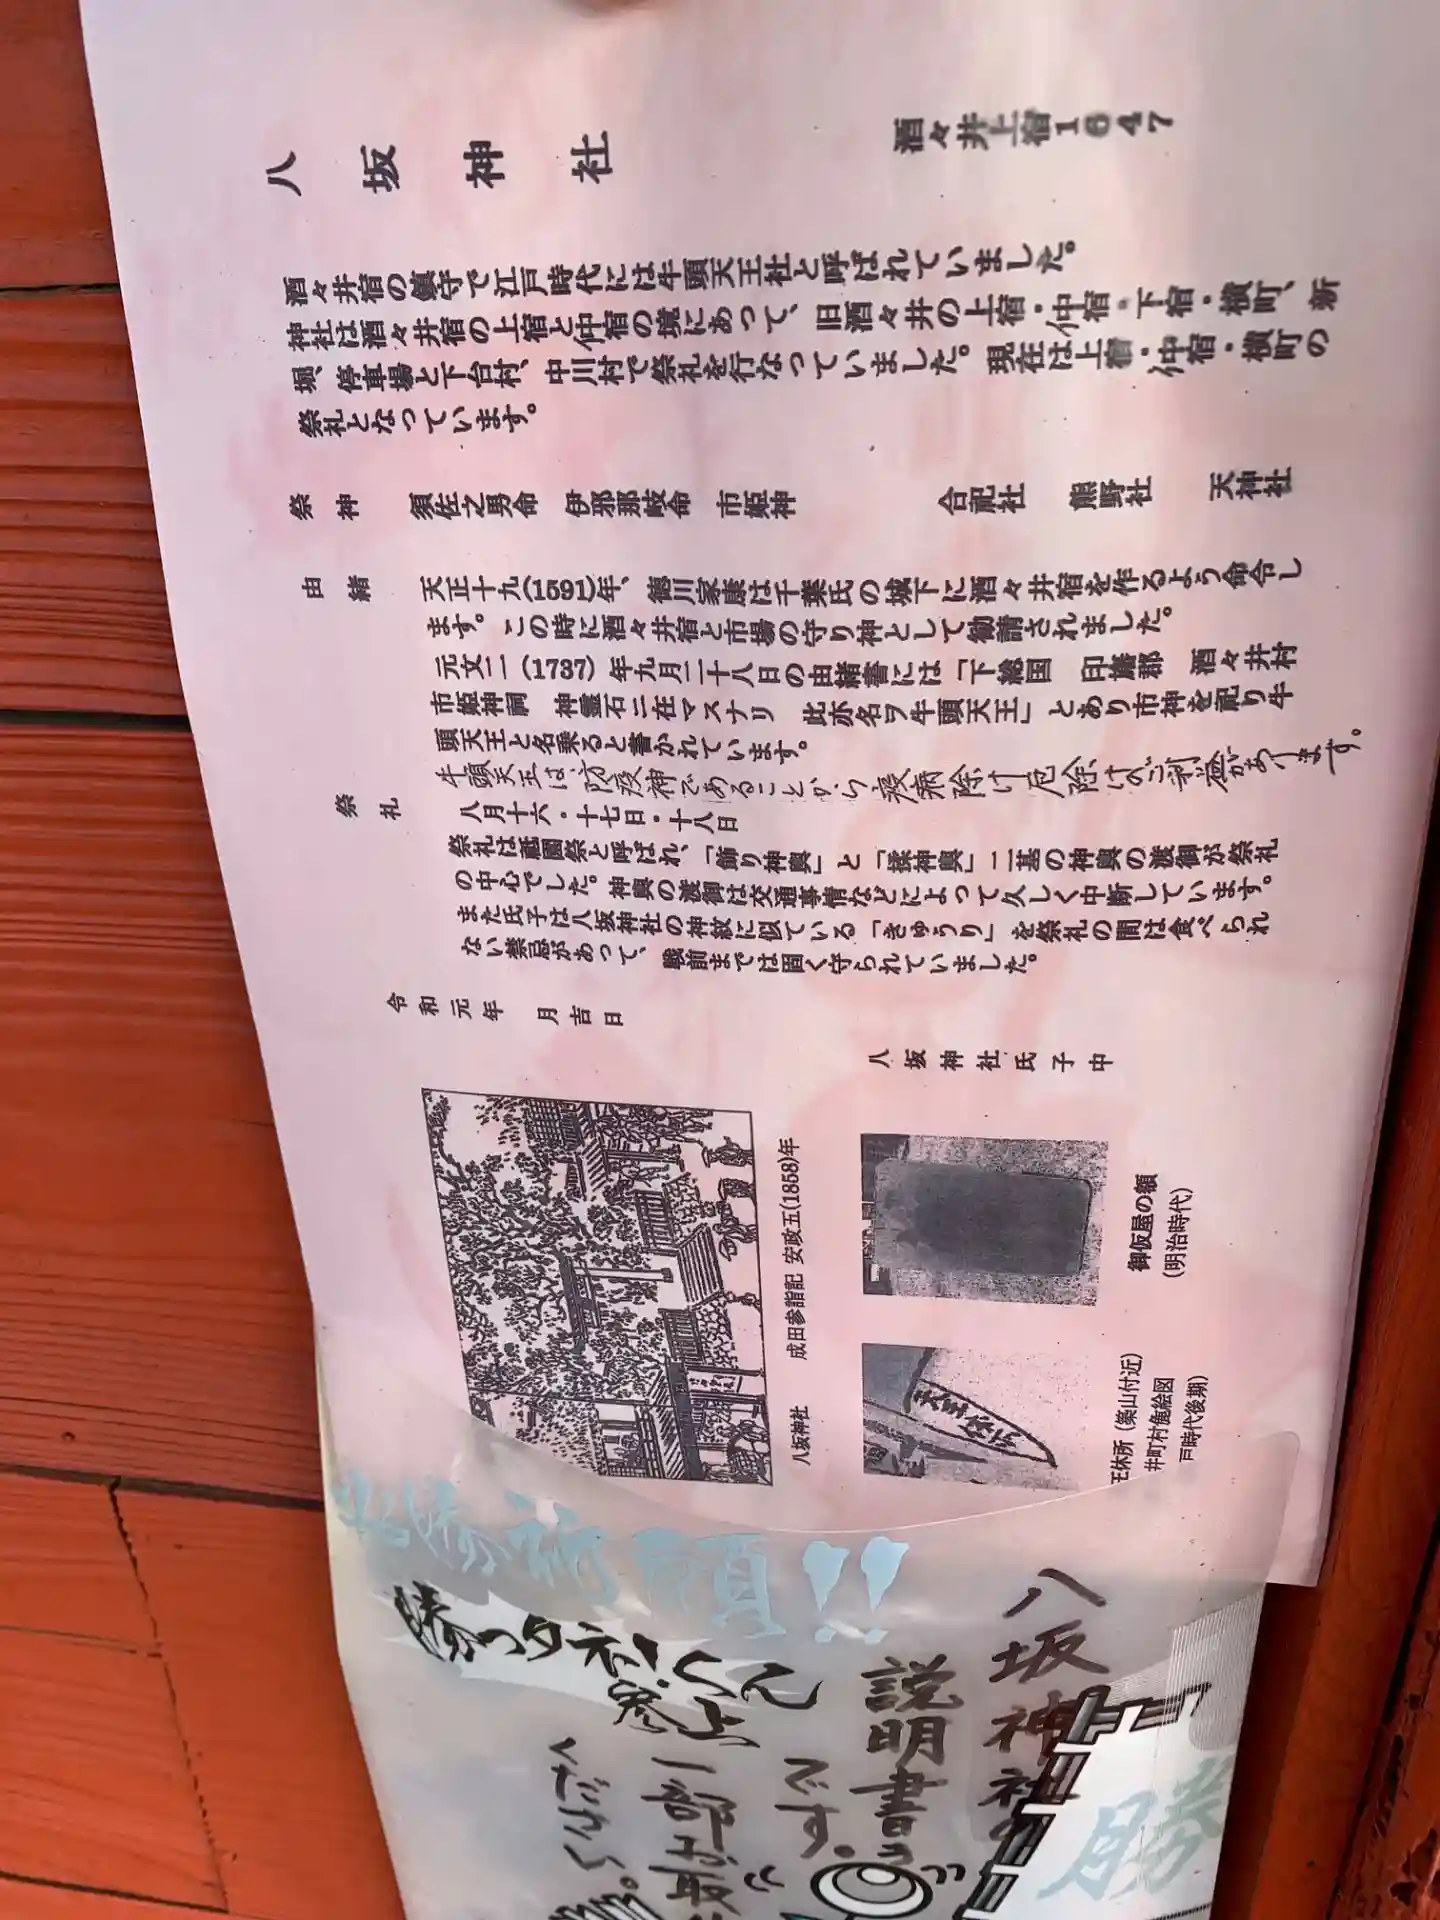 八坂神社
酒々井上宿1647
酒々井宿の鎮守で江戸時代には牛頭天王社と呼ばれていました。
神社は酒々井宿の上宿と仲宿の境にあって、旧酒々井の上宿・仲宿・下宿・横町、新
堀、停車場と下台村、中川村で祭礼を行なっていました。現在は上宿・仲宿・横町の
祭礼となっています。
祭神 須佐之男命 伊邪那岐命 市姫神 合祀社 熊野社 天神社
由緒 天正十九(1591)年、徳川家康は千葉氏の城下に酒々井宿を作るよう命令し
ます。この時に酒々井宿と市場の守り神として勧請されました。
元文二(1737)年九月二十八日の由緒書には「下総国 印旛郡 酒々井村
市姫神祠 神霊石ニ在マスナリ 此亦名ヲ牛頭天王」とあり市神を祀り牛
頭天王と名乗ると書かれています。
牛頭天王は防疫神であることから疫病除け厄除けのご利益があります。
祭礼 八月十六・十七日・十八日
祭礼は祗園祭と呼ばれ、「飾り神輿」と「揉神輿」二基の神輿の渡御が祭礼
の中心でした。神輿の渡御は交通事情などによって久しく中断しています。
また氏子は八坂神社の神紋に似ている「きゅうり」を祭礼の間は食べられ
ない禁忌があって、戦前までは固く守られていました。
令和元年 月吉日
八坂神社氏子中
八坂神社 成田参詣記 安政五(1858)年
天王休所
御仮屋の額
(明治時代)
王休所(築山付近)
井町村麁絵図
戸時代後期)
必勝祈願!!
勝つタネ!くん
八坂神社の
説明書
です。
一部
ください。
勝